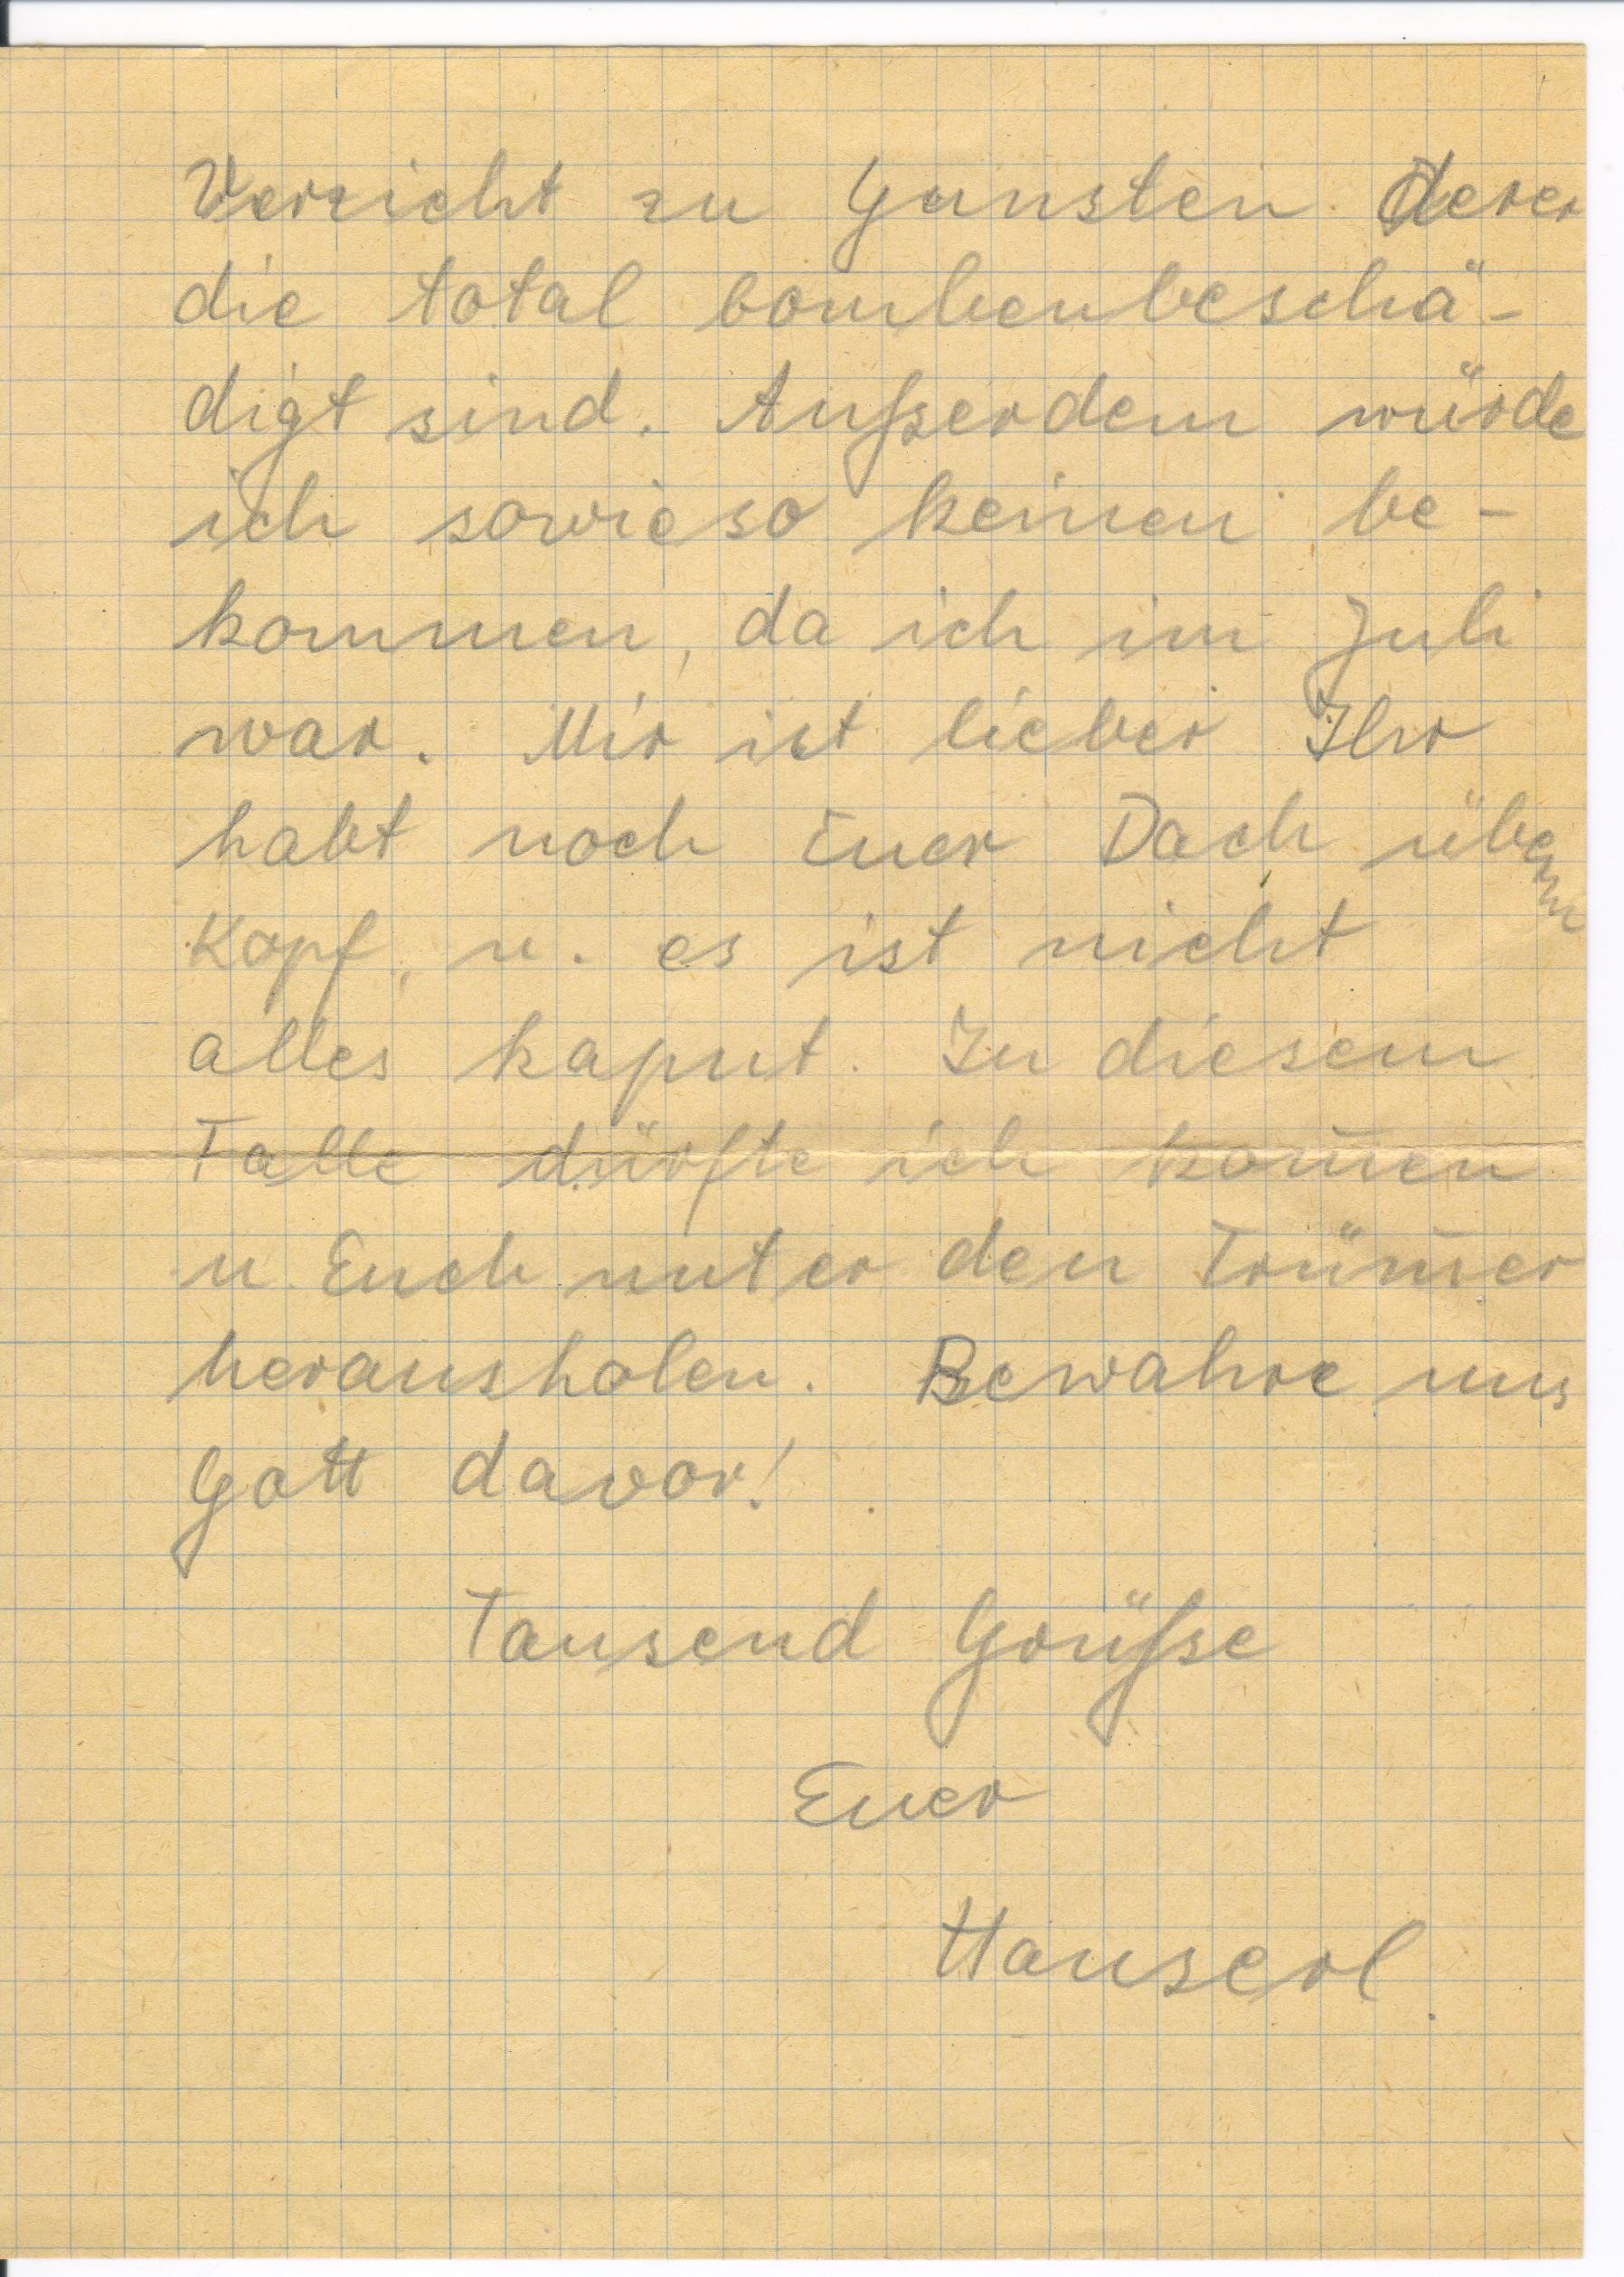 Verzicht zu Gunsten derer
die total bombenbeschä-
digt sind. Außerdem würde
ich sowieso keinen be-
kommen, da ich im Juli
war. Mir ist lieber Ihr
habt noch Euer Dach überm
Kopf, u. es ist nicht
alles kaput. In diesem
Falle dürfte ich kom̅en
u. Euch unter den Trüm̅er
herausholen. Bewahre uns
Gott davor!
Tausend Grüße
Euer
Hanserl.